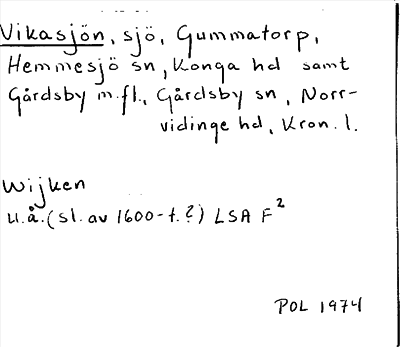 Vikasjön, sjö, Gummatorp,
Hemmesjö sn, Konga hd samt
Gårdsby m.fl., Gårdsby sn, Norr-
vidinge hd, Kron. l.
Wijken
u.å. (sl. av 1600-t.?) LSA F²
POL 1974